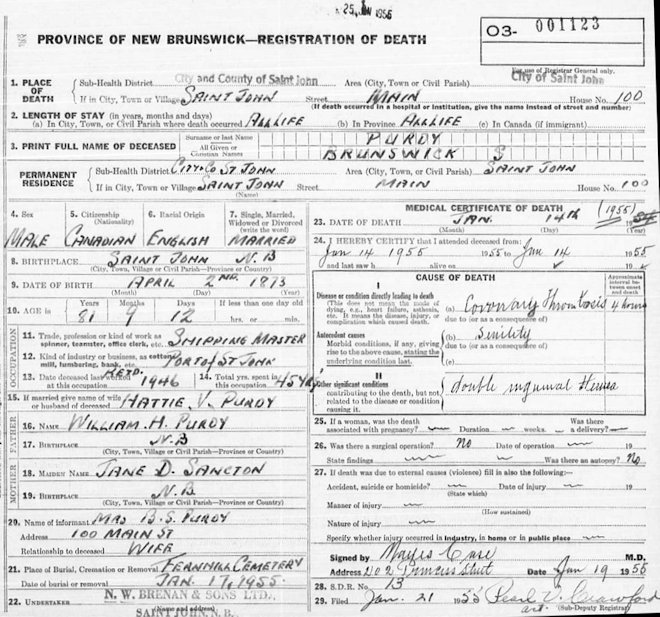 25 JAN 1955
PROVINCE OF NEW BRUNSWICK—REGISTRATION OF DEATH
03- 001123
For use of Registrar General only.
1. PLACE OF DEATH
Sub-Health District City and County of Saint John Area (City, Town or Civil Parish) City of Saint John
If in City, Town or Village SAINT JOHN Street MAIN House No. 100
(If death occurred in a hospital or institution, give the name instead of street and number)
2. LENGTH OF STAY (in years, months and days)
(a) In City, Town or Civil Parish where death occurred ALL LIFE (b) In Province ALL LIFE (c) In Canada (if immigrant)
3. PRINT FULL NAME OF DECEASED
Surname or last Name PURDY
All Given or Christian Names BRUNSWICK S
PERMANENT RESIDENCE
Sub-Health District CITY & CO ST JOHN Area (City, Town or Civil Parish) SAINT JOHN
If in City, Town or Village SAINT JOHN Street MAIN House No. 100
(Name)
4. Sex 5. Citizenship (Nationality) 6. Racial Origin 7. Single, Married, Widowed or Divorced (write the word)
MALE CANADIAN ENGLISH MARRIED
8. BIRTHPLACE SAINT JOHN N.B
(City, Town, Village or Civil Parish—Province or Country)
9. DATE OF BIRTH APRIL 2ND 1873
(Month) (Day) (Year)
10. AGE Years Months Days If less than one day old
81 9 12 hrs. or min.
OCCUPATION
11. Trade, profession or kind of work as spinner, teamster, office clerk, etc. SHIPPING MASTER
12. Kind of industry or business, as cotton mill, lumbering, bank, etc. PORT OF ST JOHN
13. Date deceased last worked at this occupation RETD. 1946 14. Total yrs. spent in this occupation 45 YRS
15. If married give name of wife or husband of deceased HATTIE V. PURDY
FATHER
16. Name WILLIAM H. PURDY
17. Birthplace N.B
(City, Town, Village or Civil Parish—Province or Country)
MOTHER
18. Maiden Name JANE D. SANCTON
19. Birthplace N.B
(City, Town, Village or Civil Parish—Province or Country)
20. Name of informant MRS B.S. PURDY
Address 100 MAIN ST
Relationship to deceased WIFE
21. Place of Burial, Cremation or Removal FERNHILL CEMETERY
Date of burial or removal JAN. 17, 1955.
22. UNDERTAKER N. W. BRENAN & SONS LTD.,
(Name and address)
SAINT JOHN, N. B.
MEDICAL CERTIFICATE OF DEATH
23. DATE OF DEATH JAN. 14th (1955)
(Month) (Day) (Year)
24. I HEREBY CERTIFY that I attended deceased from:
Jan 14 1955 1955 to Jan 14 1955
and last saw h alive on 19
CAUSE OF DEATH
Approximate interval between onset and death
I
Disease or condition directly leading to death
(This does not mean the mode of dying, e.g., heart failure, asthenia, etc. It means the disease, injury, or complication which caused death.
(a) Coronary Thrombosis 4 hours
due to (or as a consequence of)
Antecedent causes
Morbid conditions, if any, giving rise to the above cause, stating the underlying condition last.
(b) Senility
due to (or as a consequence of)
(c)
II
Other significant conditions
contributing to the death, but not related to the disease or condition causing it.
double inguinal Hernia
25. If a woman, was the death associated with pregnancy? Duration weeks. Was there a delivery?
26. Was there a surgical operation? No Date of operation 19
State findings Was there an autopsy? No
27. If death was due to external causes (violence) fill in also the following:—
Accident, suicide or homicide? Date of injury 19
(State which)
Manner of injury
(How sustained)
Nature of injury
Specify whether injury occurred in industry, in home or in public place
Signed by Mayes Case M.D.
Address 202 Princess Street Date Jan 19 1955
28. S.D.R. No. 13
29. Filed Jan. 21 1955 Pearl V. Crawford
(Sub-Deputy Registrar)